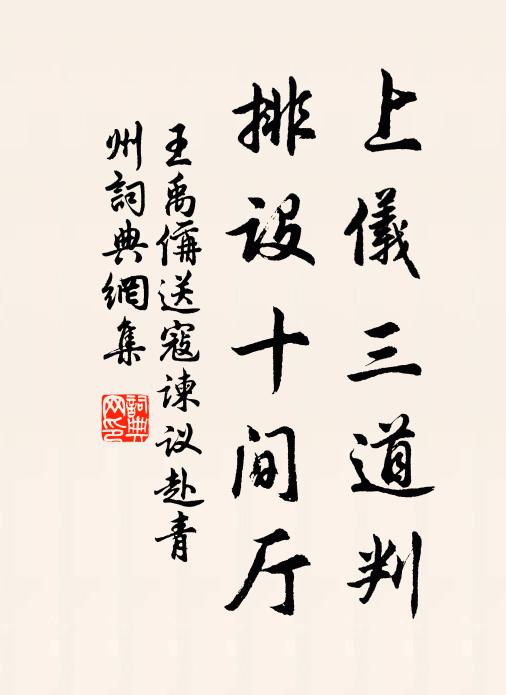 上儀三道判
排设十间厅
王禹偁送寇谏议赴青
州詞典網集
詞典
网印